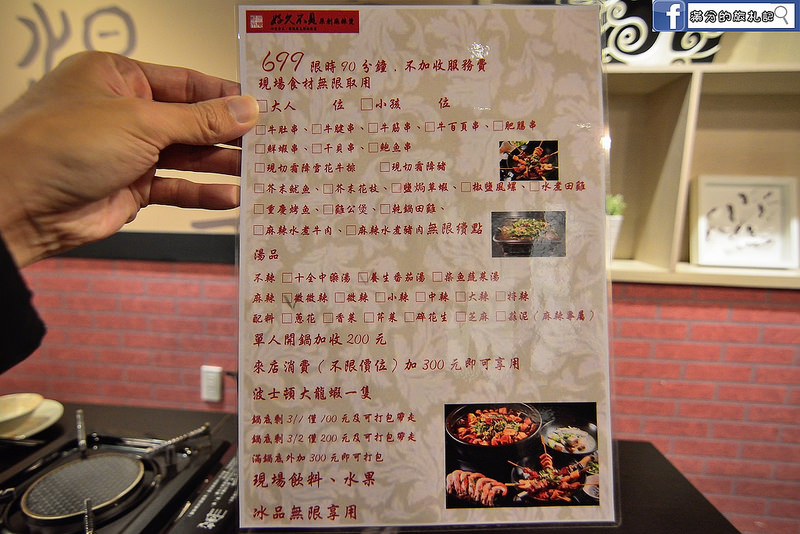 滿分的旅札記
好久不見 原創麻辣燙
699 限時90分鐘.不加收服務費
現場食材無限取用
□大人 位 □小孩 位
□牛肚串、□牛腱串、□牛筋串、□牛百頁串、□肥腸串
□鮮蝦串、□干貝串、□鮑魚串
□現切霜降雪花牛排 □現切霜降豬
□芥末魷魚、□芥末花枝、□鹽焗草蝦、□椒鹽風螺、□水煮田雞
□重慶烤魚、□雞公煲、□乾鍋田雞、
□麻辣水煮牛肉、□麻辣水煮豬肉無限續點
湯品
不辣 □十全中藥湯 □養生番茄湯 □菜魚蔬菜湯
麻辣 □微微辣 □微辣 □小辣 □中辣 □大辣 □特辣
配料 □蔥花 □香菜 □芹菜 □碎花生 □芝麻 □蒜泥(麻辣專屬)
單人開鍋加收200元
來店消費(不限價位)加300元即可享用
波士頓大龍蝦一隻
鍋底剩3/1僅100元及可打包帶走
鍋底剩3/2僅200元及可打包帶走
滿鍋底外加300元即可打包
現場飲料、水果
冰品無限享用